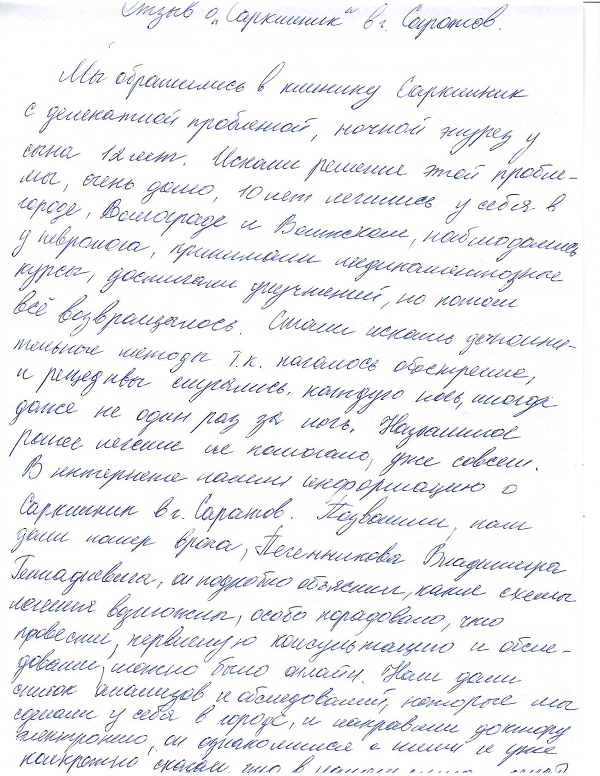 Отзыв о „Сарклиник“ в г. Саратов.
Мы обратились в клинику Сарклиник
с деликатной проблемой, ночной энурез у
сына 12 лет. Искали решение этой пробле-
мы, очень долго, 10 лет лечились у себя в
городе, Волгограде и Волжском, наблюдались
у невролога, принимали медикаментозные
курсы, достигали улучшений, но потом
всё возвращалось. Стали искать дополни-
тельные методы т.к. началось обострение,
и рецедивы случались каждую ночь, иногда
даже не один раз за ночь. Назначенное
ранее лечение не помогало, уже совсем.
В интернете нашли информацию о
Сарклиник в г. Саратов. Позвонили, нам
дали номер врача, Печенникова Владимира
Геннадиевича, он подробно объяснил, какие схемы
лечения возможны, особо порадовало, что
провести, первичную консультацию и обсле-
дования, можно было онлайн. Нам дали
список анализов и обследований, которые мы
сделали у себя в городе, и направили доктору
электронно, он ознакомился с ними и уже
конкретно сказал, что в